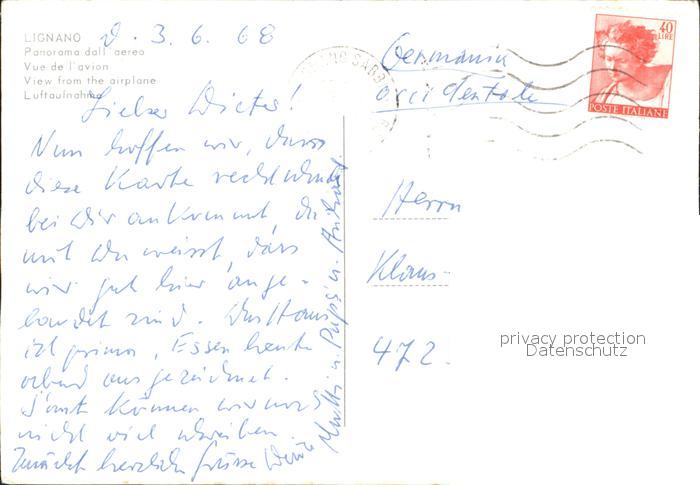 LIGNANO
Panorama dall'aereo
Vue de l'avion
View from the airplane
Luftaufnahme
d. 3. 6. 68
Lieber Dieter!
Nun hoffen wir, dass
diese Karte
bei Dir ankommt, 
mit Du weisst, dass
wir gut hier ange-
landet sind. Das Haus
ist prima, Essen heute
abend ausgezeichnet.
Sonst können wir noch
nicht viel schreiben
Zunächst herzliche Grüsse
Mutti u. Papi u.
Germania
occidentale
40
LIRE
POSTE ITALIANE
Herrn
Klaus-
472
privacy protection
Datenschutz